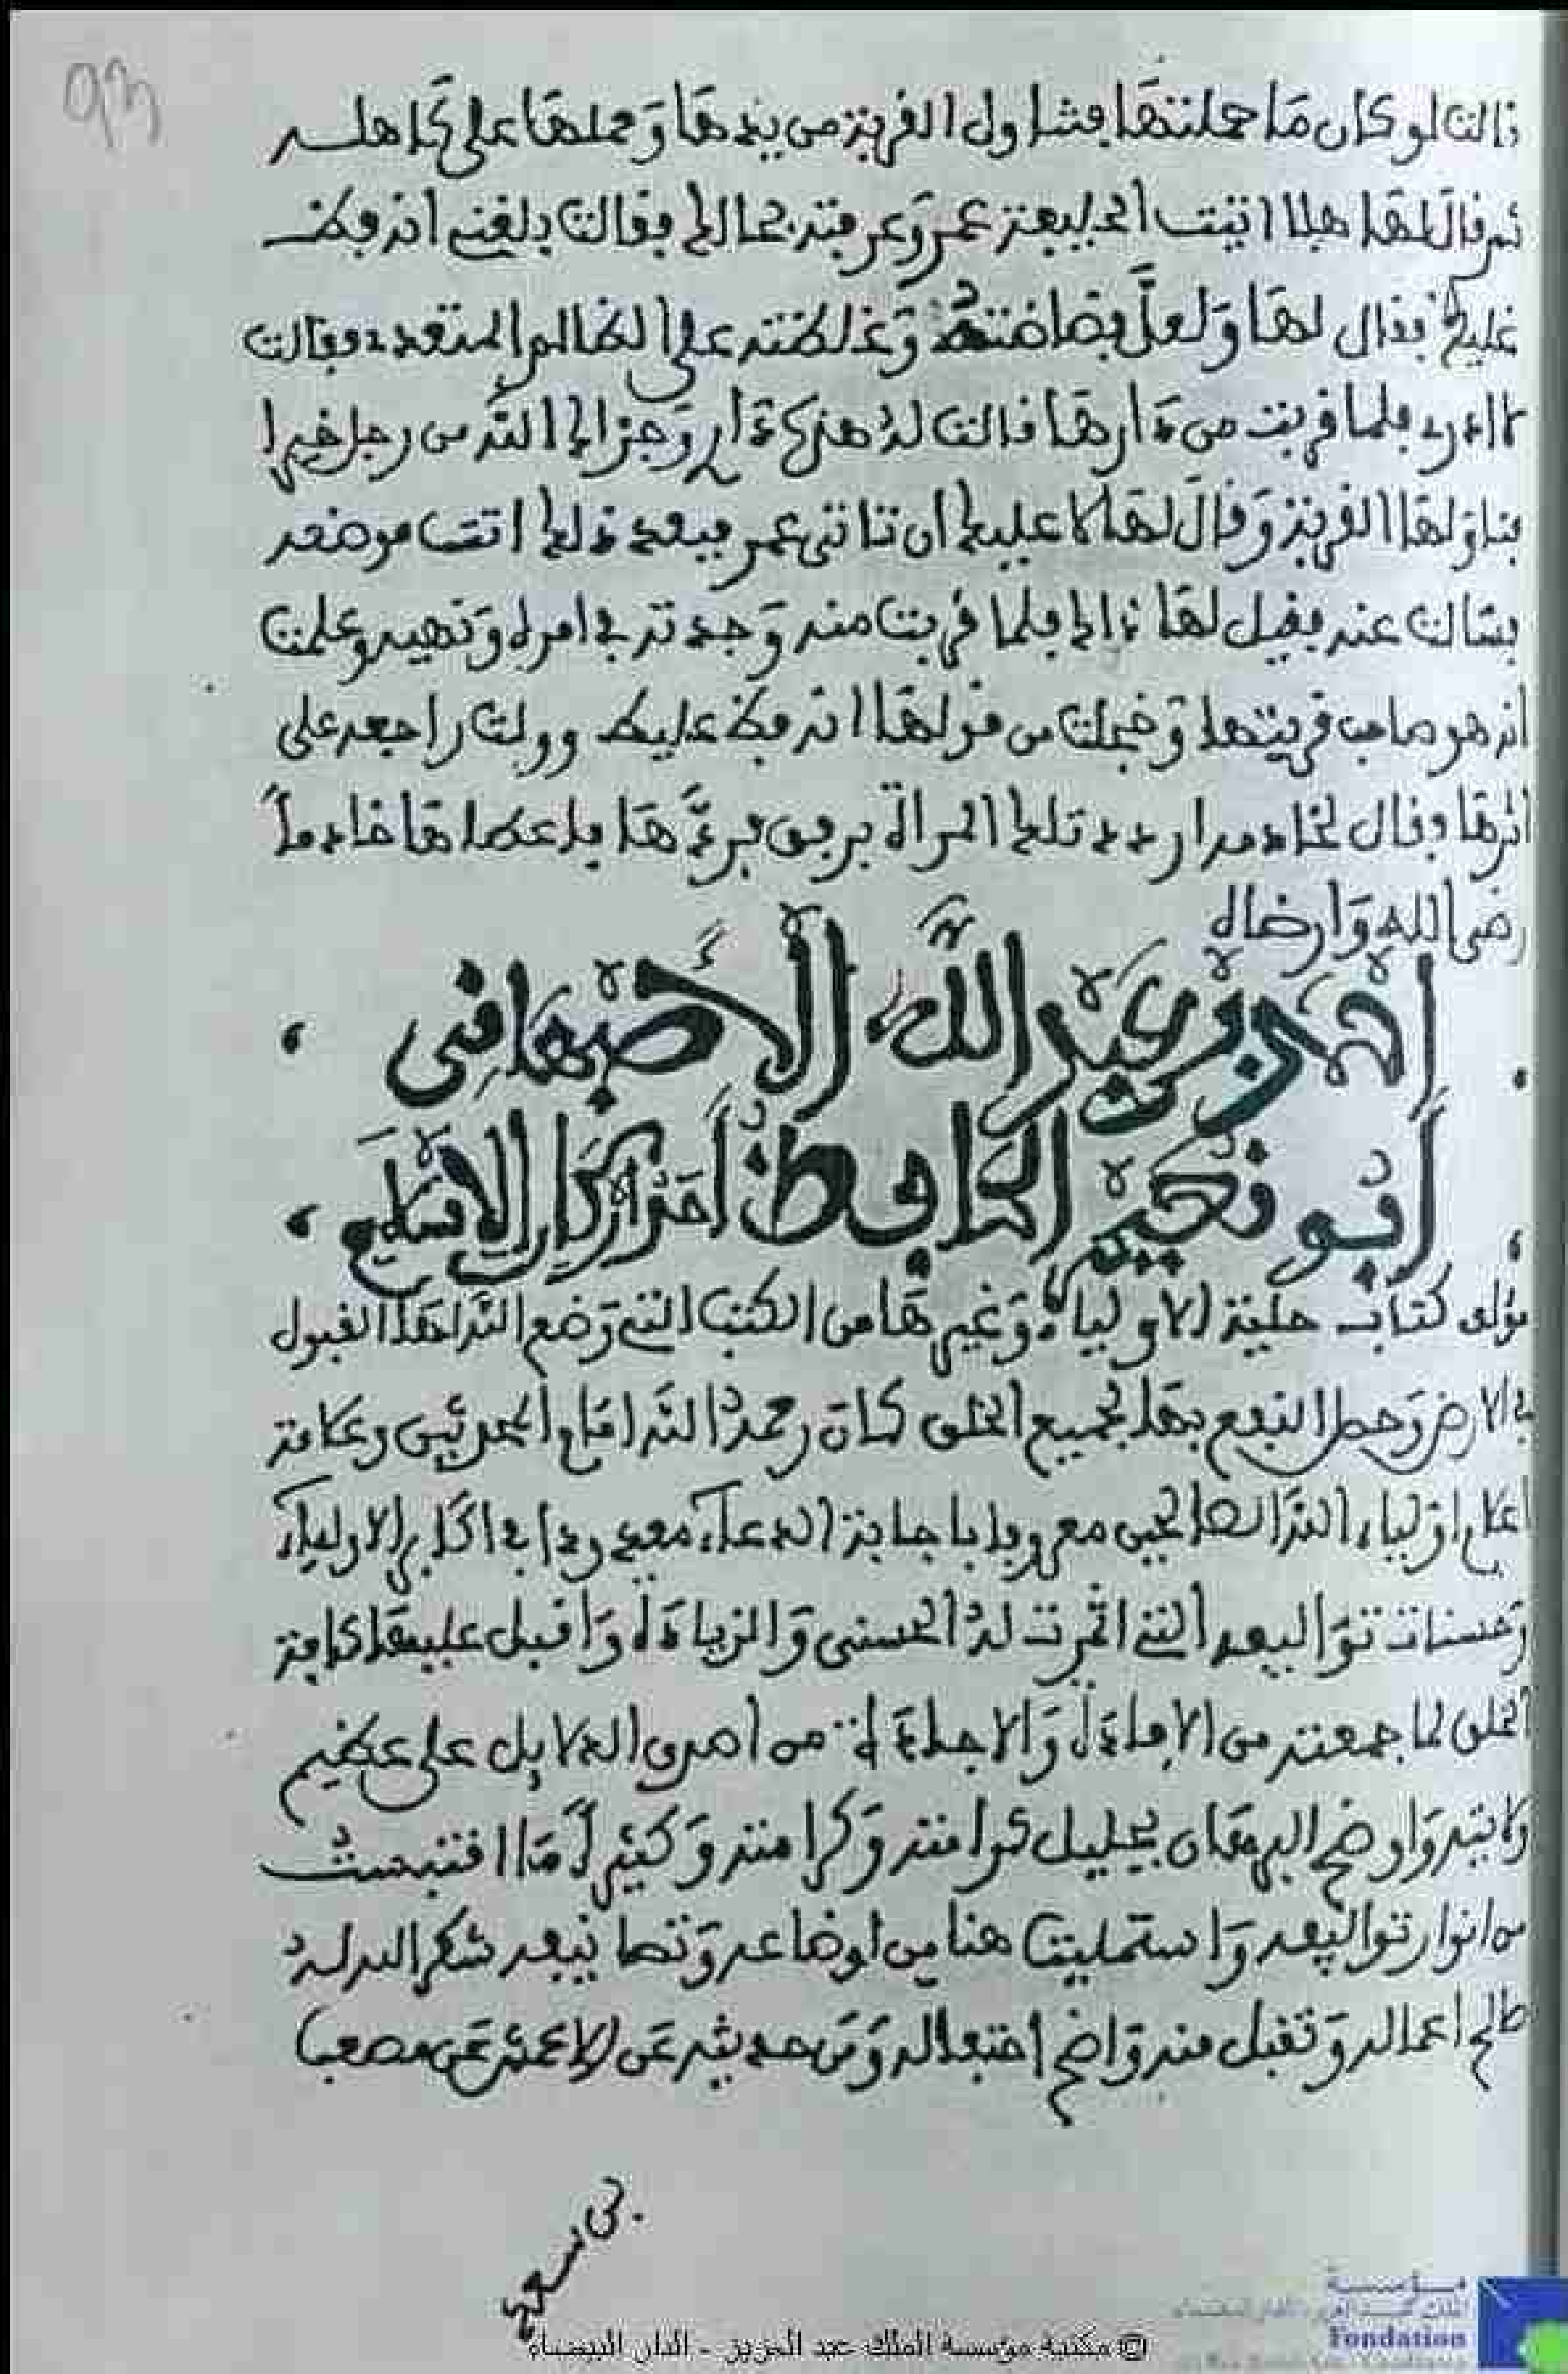 93
ذالك لو كان ما حملتها فتناول القربة من يدها وحملها على كاهله
ثم قال لها هلا اتيت الخليفة عمر وعرفته بحالك فقالت بلغني انه فظ
غليظ فقال لها ولعل فظاظته وغلظته على الظالم المتعدي فقالت
لا ادري فلما قربت من دارها قالت له هذه داري وجزاك الله من رجل خيرا
فناولها القربة وقال لها لا عليك ان تاتي عمر فبعد ذلك اتت موضعه
فسالت عنه فقيل لها ذاك فلما قربت منه وجدته في امره ونهيه وعلمت
انه هو صاحب قربتها وخجلت من قولها انه فظ عليك وولت راجعة على
اثرها فقال لخادمه اردد تلك المراة برفق فردها فاعطاها خادما
رضي الله وارضاه
احمد بن عبد الله الأصبهاني
ابو نعيم الحافظ احد اركان الاسلام
مؤلف كتاب حلية الاولياء وغيرها من الكتب التي وضع الله لها القبول
في الارض وحصل النفع بها لجميع الخلق كان رحمه الله امام المحدثين وعامة
اعلام اولياء الله الصالحين معروفا باجابة الدعاء معدودا في اكابر الاولياء
وحسنات تواليفه التي اثمرت له الحسنى والزيادة واقبل عليها كافة
الخلق لما جمعته من الافادة والاجادة من اصدق الدلايل على عظيم
ولايته واوضح البرهان بجليل كراماته وكثيرا ما اقتبست
من انوار تواليفه واستمليت هنا من اوضاعه وتصانيفه شكر الله له
صالح اعماله وتقبل منه واضح افعاله ومن حديثه عن الاعمش عن مصعب
بن سعد
مؤسسة
الملك عبد العزيز
Fondation
© مكتبة مؤسسة الملك عبد العزيز - الدار البيضاء